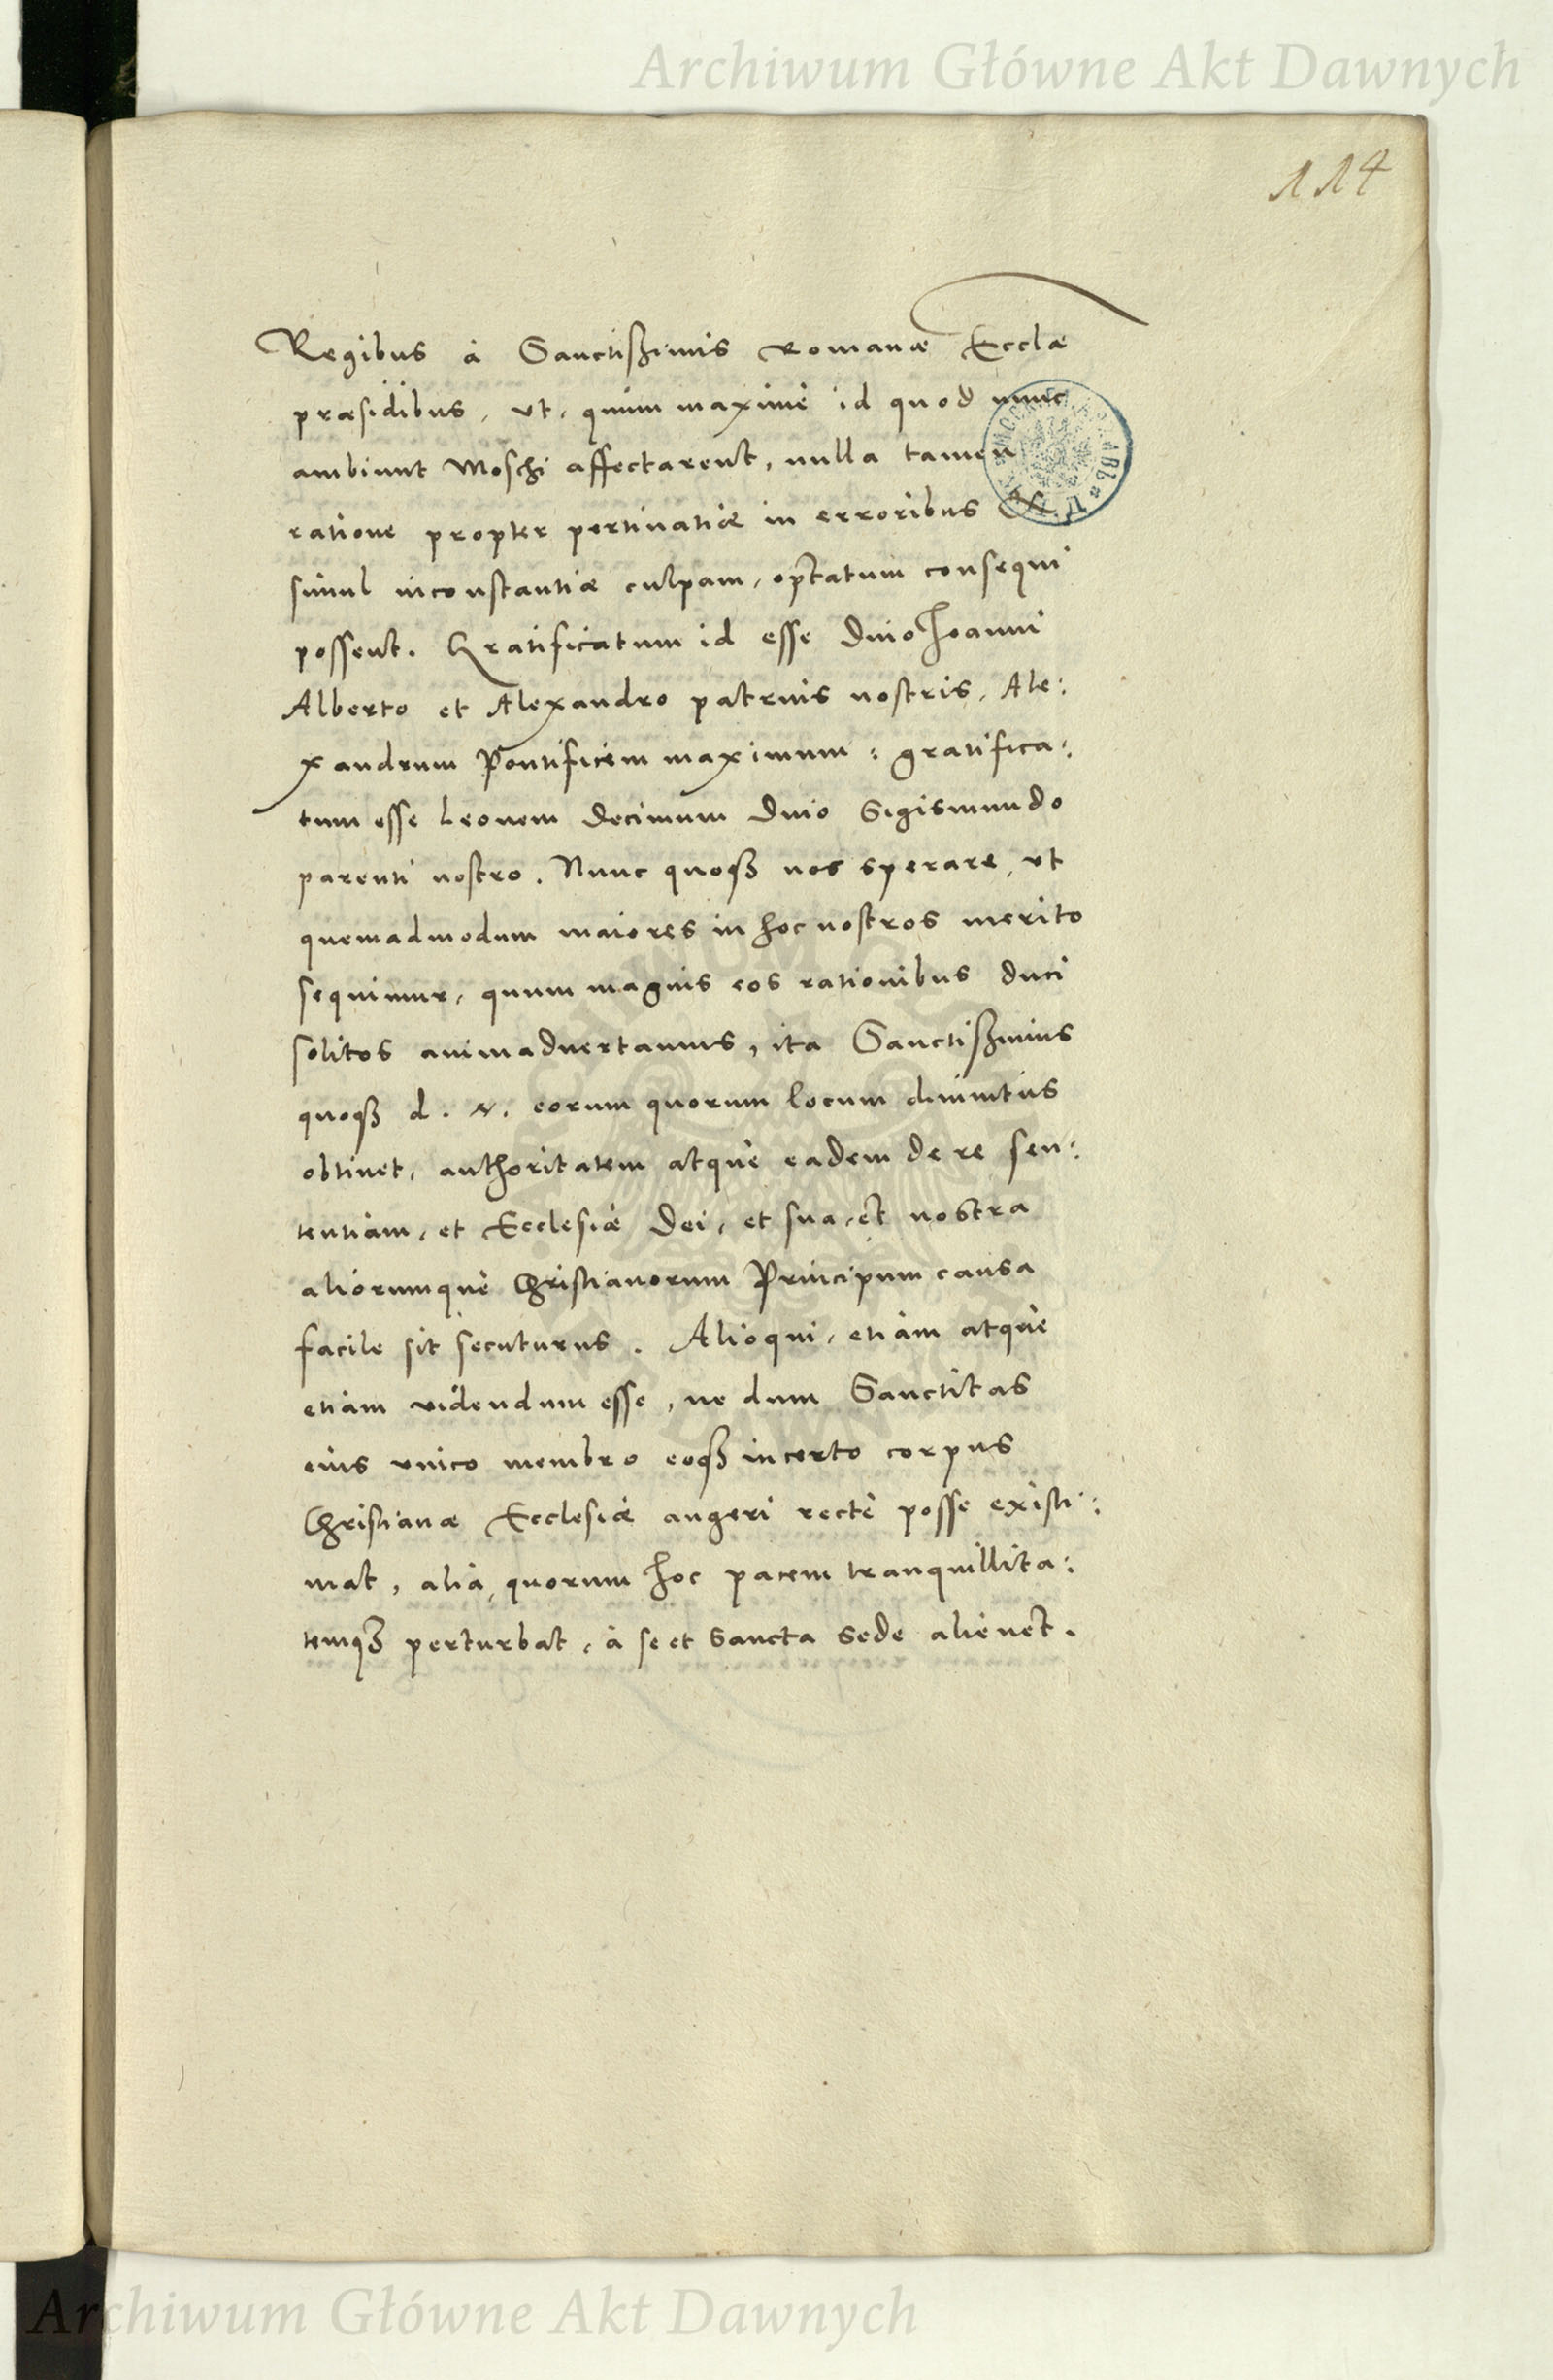 Archiwum Główne Akt Dawnych
114
Regibus à Sanctißimis Romanæ Ecclæ
præsidibus, vt, quum maximè id quod nunc
ambiunt Moschi affectarent, nulla tamen
ratione propter pertinatiæ in erroribus &
simul inconstantiæ culpam, optatum consequi
possent. Gratificatum id esse Diuo Joanni
Alberto et Alexandro patruis nostris, Ale:
xandrum Pontificem maximum: gratifica:
tum esse Leonem Decimum Diuo Sigismundo
parenti nostro. Nunc quoqȝ nos sperare, vt
quemadmodum maiores in hoc nostros merito
sequimur, quum magnis eos rationibus duci
solitos animaduertamus, ita Sanctißimus
quoqȝ d. n. eorum quorum locum diuinitus
obtinet, authoritatem atque eadem de re sen:
tentiam, et Ecclesiæ Dei, et sua, et nostra
aliorumque Christianorum Principum causa
facile sit secuturus. Alioqui, etiam atque
etiam videndum esse, ne dum Sanctitas
eius vnico membro eoqȝ incerto corpus
Christianæ Ecclesiæ augeri rectè posse existi:
mat, alia, quorum hoc pacem tranquillita:
temqȝ perturbat, à se et Sancta Sede alienet.
Archiwum Główne Akt Dawnych